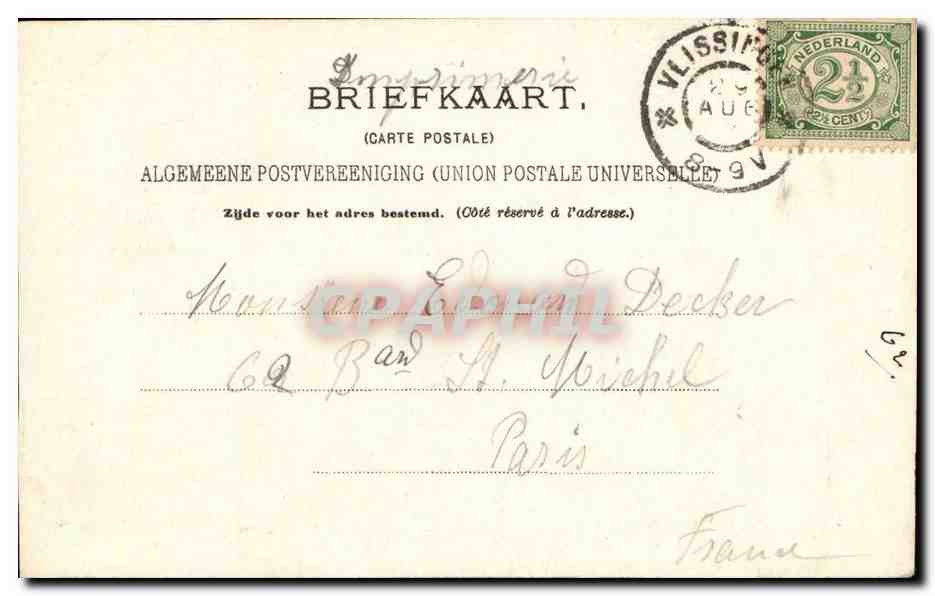 Imprimerie
BRIEFKAART.
(CARTE POSTALE)
ALGEMEENE POSTVEREENIGING (UNION POSTALE UNIVERSELLE)
Zijde voor het adres bestemd. (Côté réservé à l'adresse.)
VLISSINGEN
29
AUG
8-9V
NEDERLAND
2½
(2½ CENT)
Monsieur Edouard Decker
62 Bard St. Michel
Paris
France
CPAPHIL